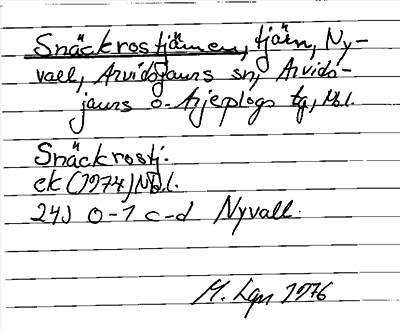 Snäckrostjärnen, tjärn, Ny-
vall, Arvidsjaurs sn, Arvids-
jaurs o. Arjeplogs tg, Nbl.
Snäckrostj.
ek (1974) Nbl.
24J 0-1 c-d Nyvall.
M. 1976